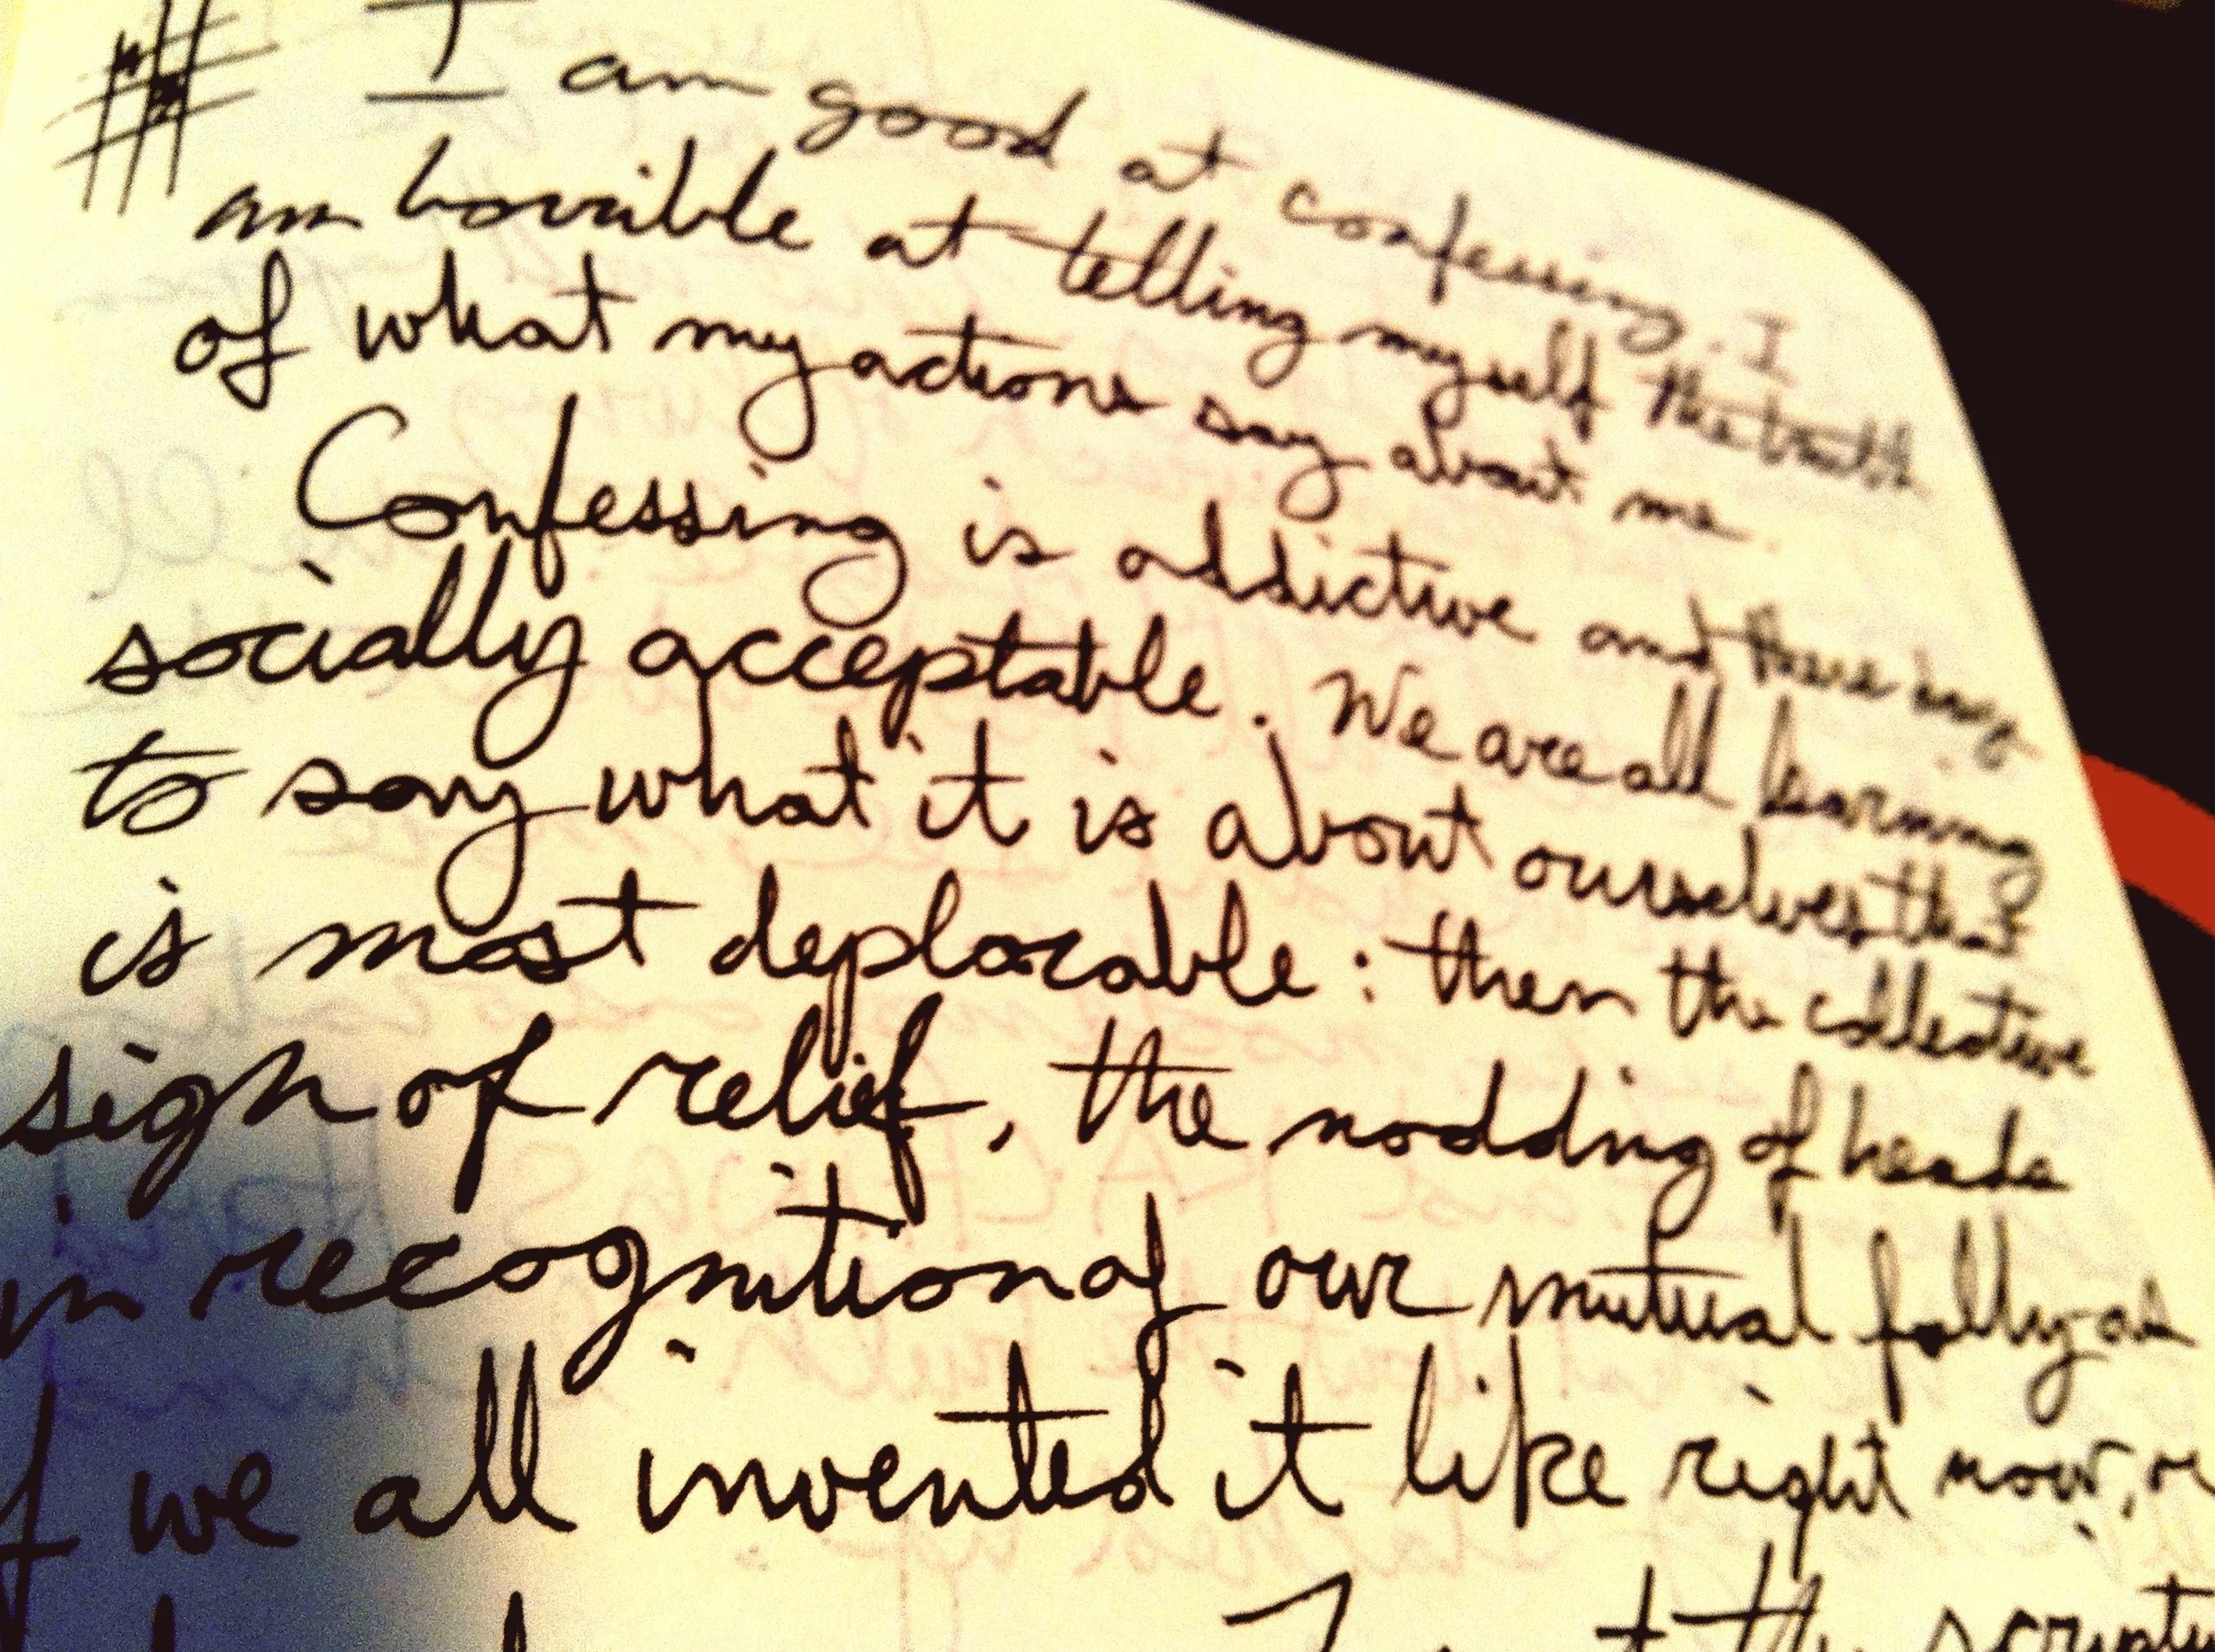 # I am good at confessing. I
am horrible at telling myself the truth
of what my actions say about me.
Confessing is addictive and these days
socially acceptable. We are all learning
to say what it is about ourselves that
is most deplorable: then the collective
sigh of relief, the nodding of heads
in recognition of our mutual folly as
if we all invented it like right now, or
the